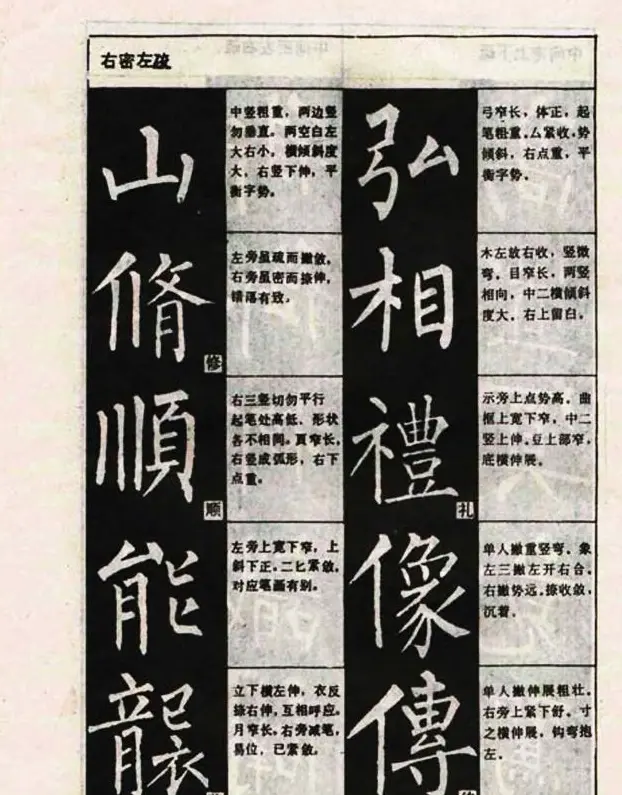 右密左疏
山
中竖粗重，两边竖
勿垂直。两空白左
大右小，横倾斜度
大，右竖下伸，平
衡字势。
脩
修
左旁虽疏而撇敛，
右旁虽密而捺伸，
错落有致。
順
顺
右三竖切勿平行
起笔处高低、形状
各不相同。頁窄长，
右竖成弧形，右下
点重。
能
左旁上宽下窄，上
斜下正。二匕紧敛，
对应笔画有别。
襲
立下横左伸，衣反
捺右伸，互相呼应。
月窄长。右旁减笔，
易位，已紧敛。
弘
弓窄长，体正，起
笔粗重。厶紧收，势
倾斜，右点重，平
衡字势。
相
木左放右收，竖微
弯。目窄长，两竖
相向，中二横倾斜
度大，右上留白。
禮
礼
示旁上点势高。曲
框上宽下窄，中二
竖上伸。豆上部窄，
底横伸展。
像
单人撇重竖弯。象
左三撇左开右合。
右撇势远。捺收敛，
沉着。
傳
单人撇伸展粗壮。
右旁上紧下舒。寸
之横伸展，钩弯抱
左。